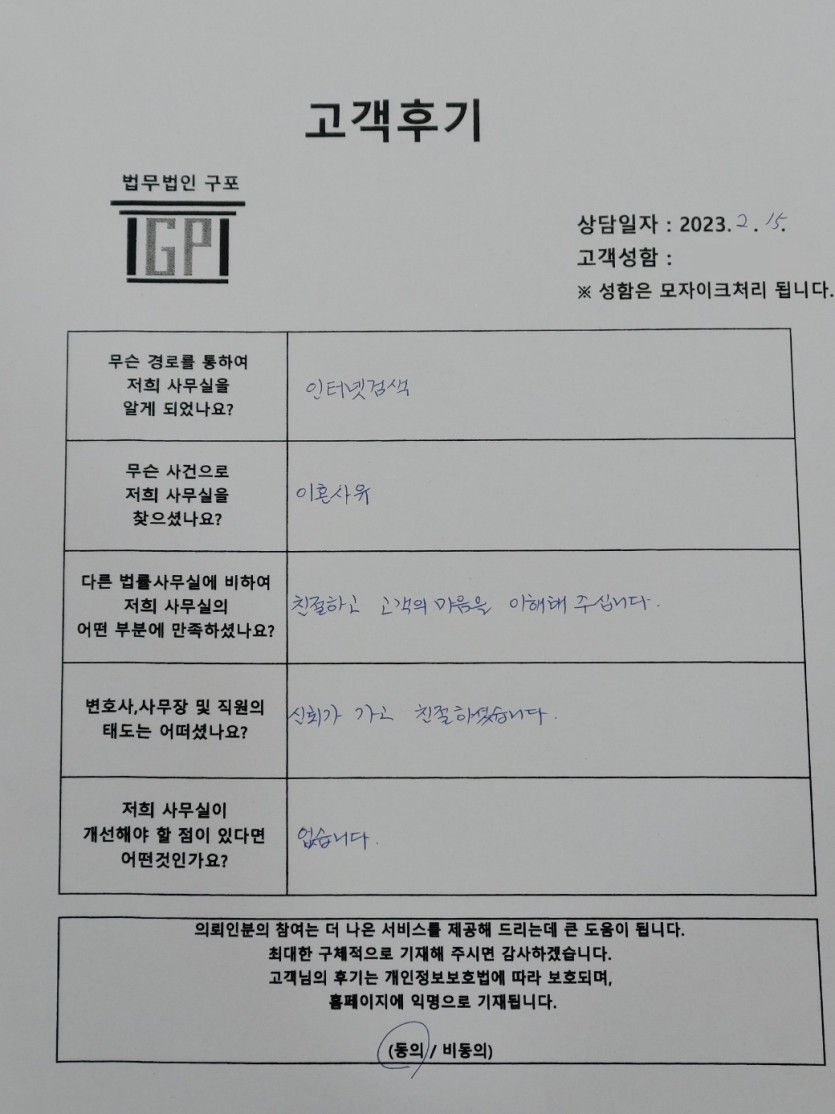 고객후기
법무법인 구포
GP
상담일자 : 2023. 2. 15.
고객성함 :
※ 성함은 모자이크처리 됩니다.
무슨 경로를 통하여
저희 사무실을
알게 되었나요?
인터넷검색
무슨 사건으로
저희 사무실을
찾으셨나요?
이혼사유
다른 법률사무실에 비하여
저희 사무실의
어떤 부분에 만족하셨나요?
친절하고 고객의 마음을 이해해 주십니다.
변호사,사무장 및 직원의
태도는 어떠셨나요?
신뢰가 가고 친절하셨습니다.
저희 사무실이
개선해야 할 점이 있다면
어떤것인가요?
없습니다.
의뢰인분의 참여는 더 나은 서비스를 제공해 드리는데 큰 도움이 됩니다.
최대한 구체적으로 기재해 주시면 감사하겠습니다.
고객님의 후기는 개인정보보호법에 따라 보호되며,
홈페이지에 익명으로 기재됩니다.
(동의 / 비동의)